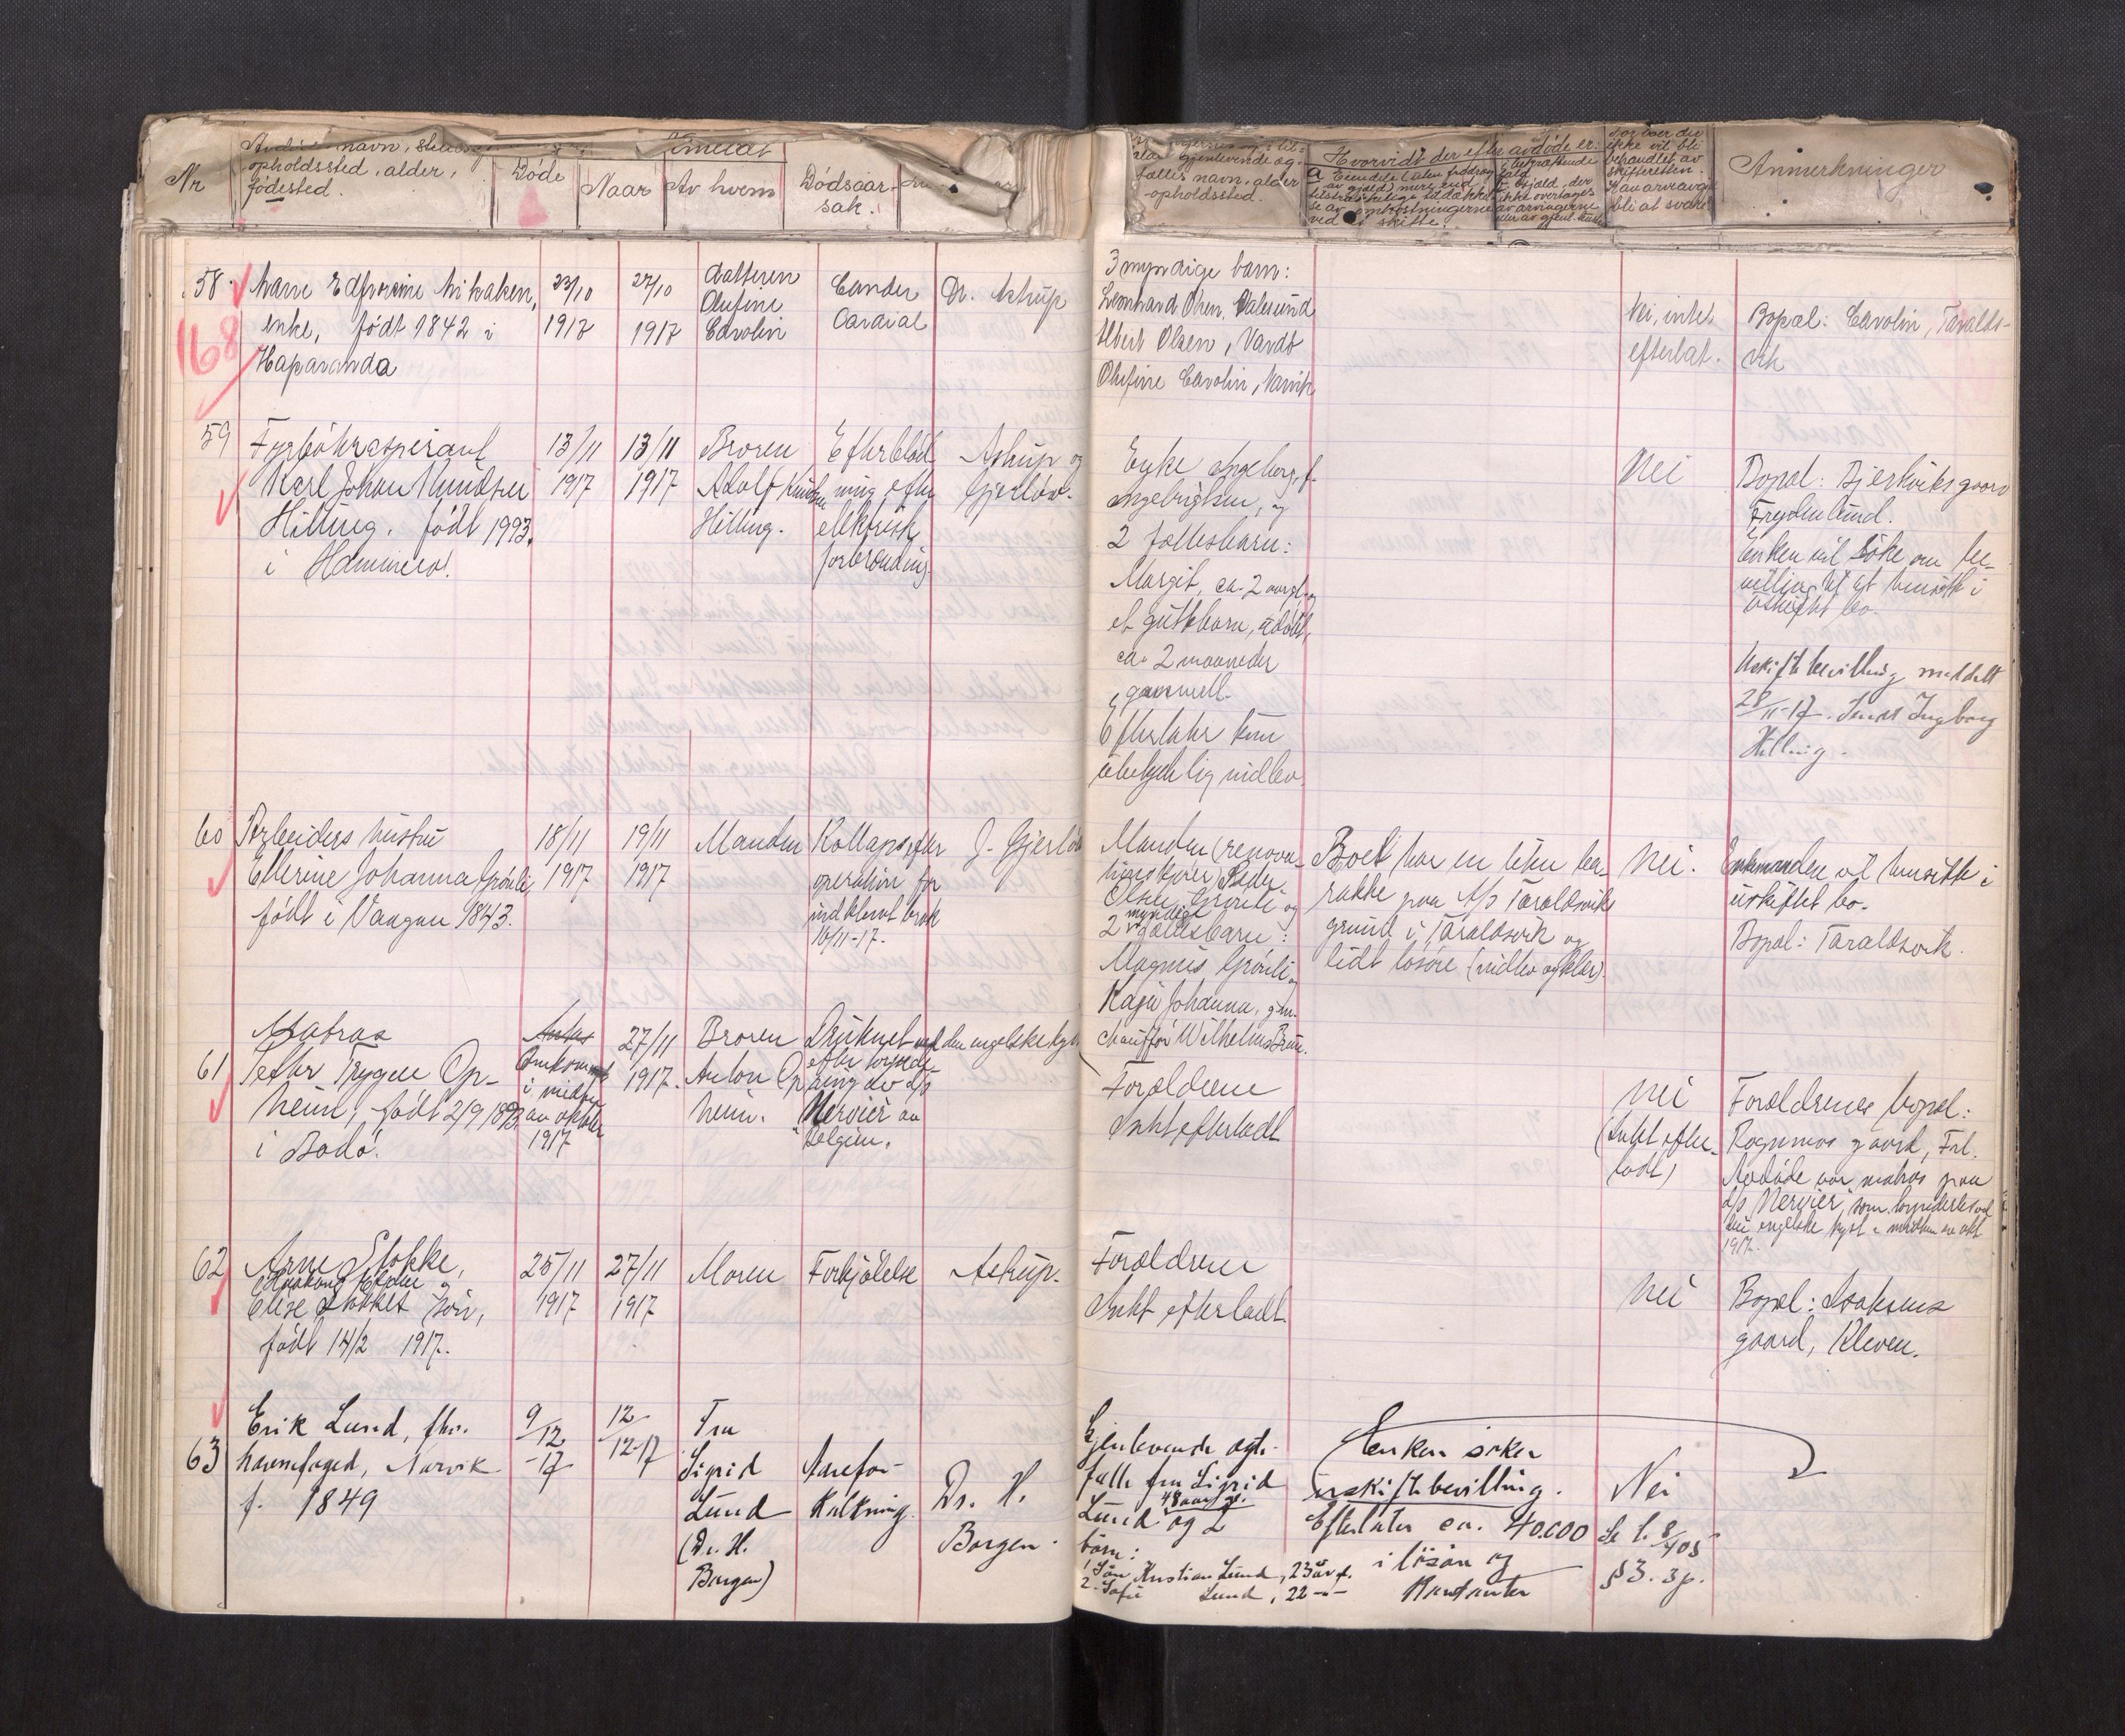 Nr
navn,
opholdssted, alder,
fødested.
Døde
Anmeldt
Naar
Av hvem
Dødsaar-
sak.
gjenlevende ægte-
fælles navn, alder
opholdssted.
Hvorvidt der efter avdøde er:
a Eiendele (uten fradrag
av gjæld) mere end
ved skifte.
ikke vil bli
behandlet av
skifteretten.
bli at svare
Anmerkninger
58.
168
enke, født 1842 i
Haparanda
23/10
1917
27/10
1917
Datteren
Olufine
Carolin
Cancer
Dr. Astrup
3 myndige barn:
Leonhard Olsen,
Albert Olsen, Vardø
Olufine Carolin, Narvik
Nei, intet
efterlat.
Bopæl: Carolin, Taralds-
vik
59
Fyrbøteraspirant
Karl Johan Knudsen
Hilling. født 1993.
i Hammerø.
13/11
1917
13/11
1917
Broren
Adolf Knudsen
Hilling.
Efterblød
ning efter
elektrisk
forbrænding.
Astrup og
Gjerløw.
Enke Ingeborg, f.
Ingebrigtsen, og
2 fællesbarn:
Margit, ca. 2 aar gl. og
et guttebarn, udøbt,
ca. 2 maaneder
gammelt.
Efterlater kun
ubetydelig indbo.
Nei
Bopæl: Bjerkviksgaard
Frydenlund.
Enken vil søke om be-
villing til at hensitte i
uskiftet bo.
Uskiftebevilling meddelt
28/11-17. Ingborg
Hilling.
60
Arbeiders hustru
Ellerine Johanna Grønli,
født i Vaagan 1843.
18/11
1917
19/11
1917
Manden
Kollaps efter
operation for
indklemt brok
16/11-17.
J. Gjerløw
Manden (renova-
tionskjører) Peder
Olsen Grønli og
2 myndige fællesbarn:
Magnus Grønli og
Kaja Johanna, g. m.
chauffør Wilhelm Bruu.
Boet har en liten ba-
rakke paa A/s Taraldsviks
grund i Taraldsvik og
lidt løsøre (indbo og klær).
Nei.
Enkemanden vil hensitte i
uskiftet bo.
Bopæl: Taraldsvik.
61
Matros
Peter Trygve Op-
heim, født 2/9 1893
i Bodø.
Omkommet
i midten
av oktober
1917
27/11
1917.
Broren
Anton Op
heim.
Druknet ved den engelske kyst
efter torpede-
ring av d/s
"Vervier" av
Belgien.
Forældrene
Intet efterladt
Nei
(Intet efter-
ladt)
Forældrenes bopæl:
Rognmos gaard, Frl.
Avdøde var matros paa
d/s "Vervier", som torpedertes ved
den engelske kyst i midten av okt
1917.
62
Arne Stokke,
Elise Stokkes søn,
født 14/2 1917.
25/11
1917
27/11
1917
Moren
Forkjølelse
Astrup.
Forældrene
Intet efterladt.
Nei
Bopæl: Isaksens
gaard, Kleven.
63
Erik Lund, fhv.
havnefoged, Narvik
f. 1849
9/12
-17
12/12-17
Fru
Sigrid
Lund
(Dr. H.
Borgen)
Aarefor-
kalkning.
Dr. H.
Borgen.
Gjenlevende ægte-
fælle fru Sigrid
Lund 48 aar gl. og 2
børn:
1. Søn Kristian Lund, 23 år gl.
2. Sofie Lund, 22 -"-
Enken søker
uskiftebevilling.
Efterlater ca. 40.000
i løsøre og
Kontanter
Nei
Se l. 8/4 05
§ 3. 3 p.